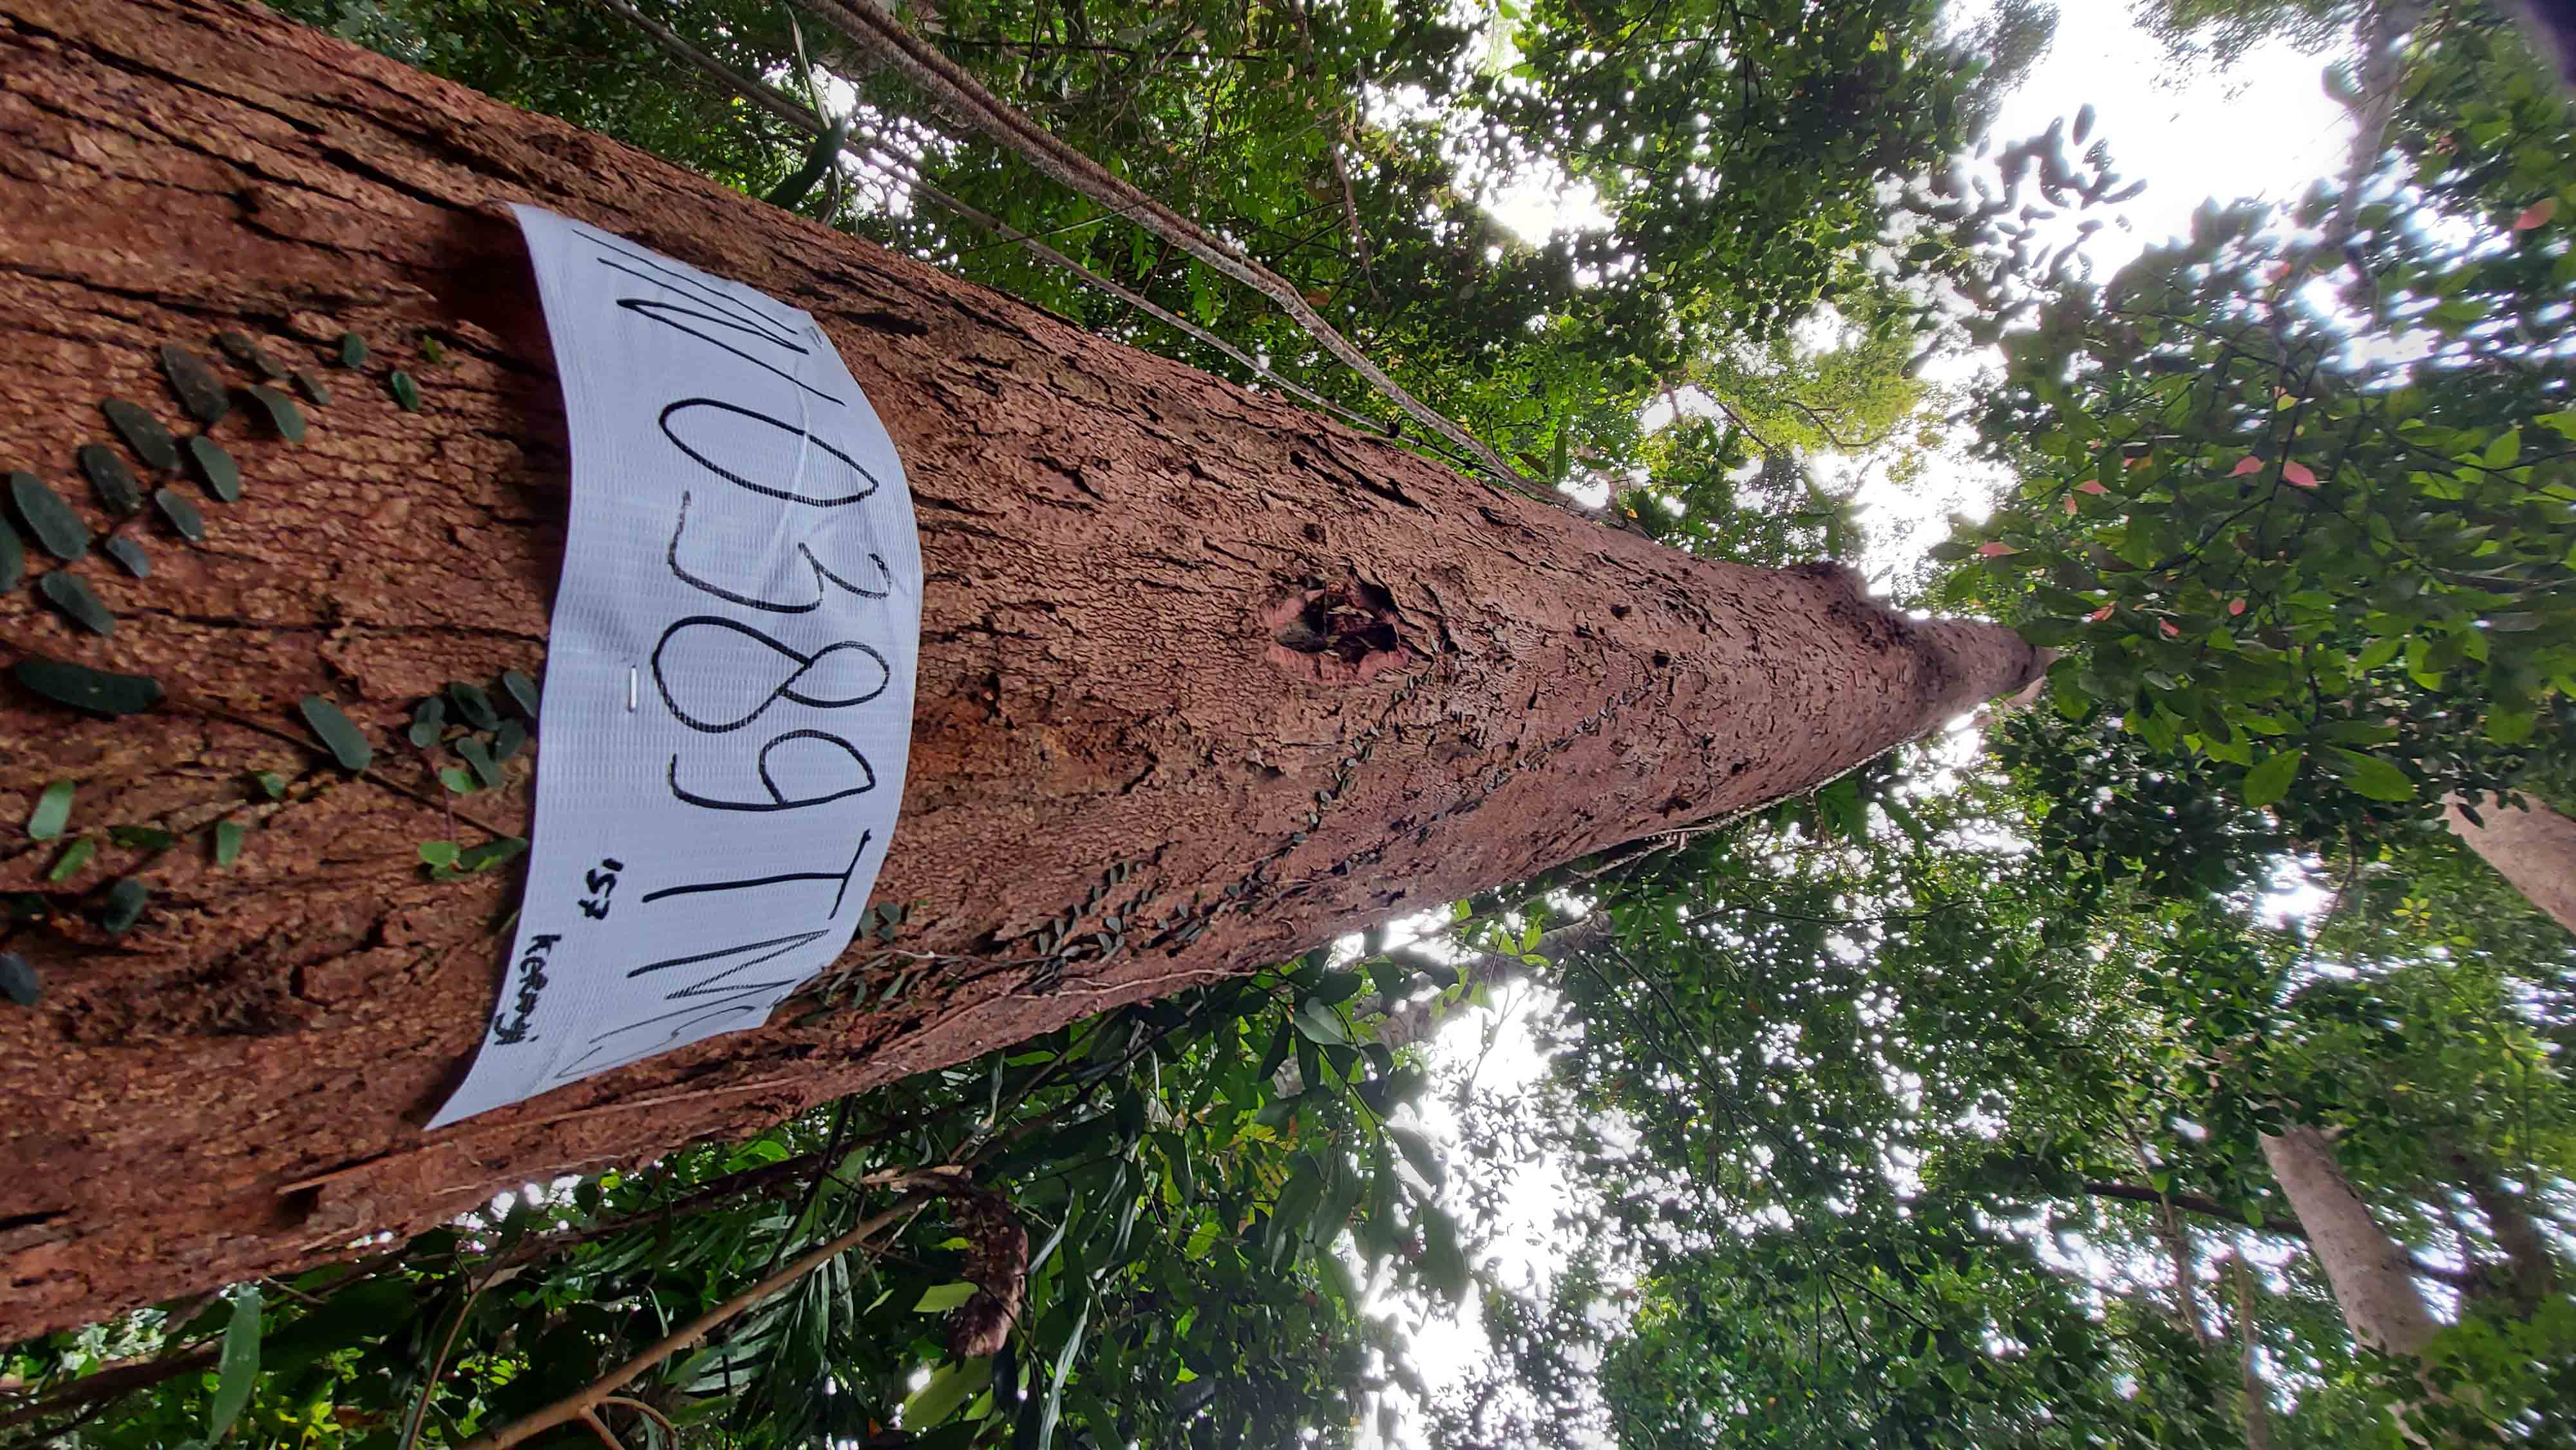 IN0389TMS
157
Keranji